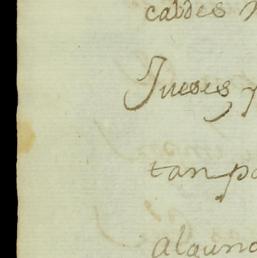 caldes
Jueses
tan po
alguno